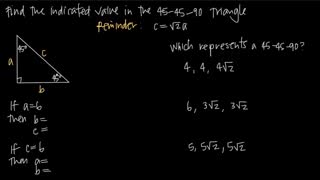 Find the indicated value in the 45-45-90 triangle
Reminder: c=√2a
45°
a
c
45°
b
If a=6
then b=
c=
If c=6
Then a=
b=
Which represents a 45-45-90?
4, 4, 4√2
6, 3√2, 3√2
5, 5√2, 5√2